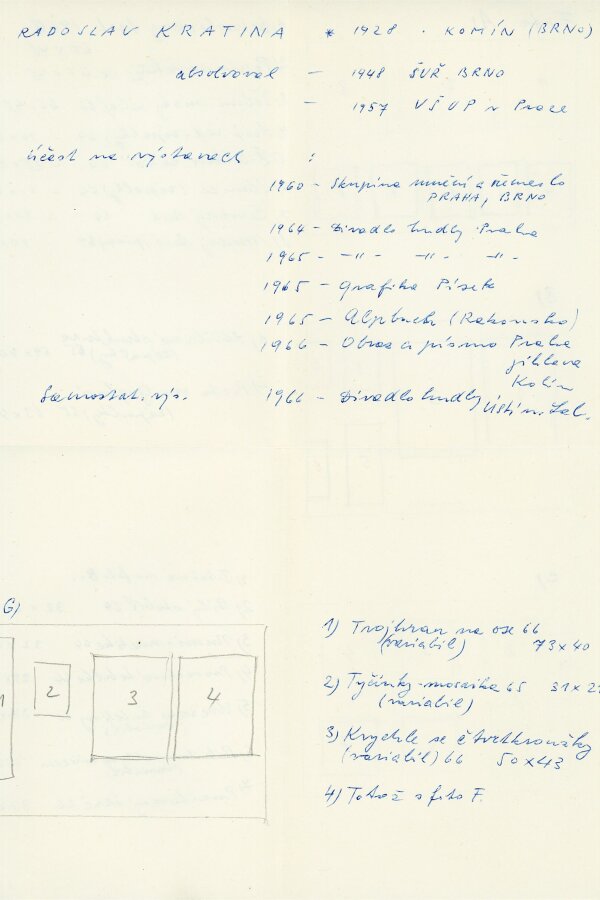 RADOSLAV KRATINA * 1928 . KOMÍN (BRNO)
absolvoval – 1948 ŠUŘ BRNO
– 1957 VŠUP v Praze
účast na výstavách :
1960 – Skupina umění a řemeslo
PRAHA, BRNO
1964 – Divadlo hudby Praha
1965 – –"– –"– –"–
1965 – Grafika Písek
1965 – Alpbach (Rakousko)
1966 – Obraz a písmo Praha
Jihlava
Kolín
Samostat. výs. 1966 – Divadlo hudby Ústí n. Lab.
G)
1
2
3
4
1) Trojhran na ose 66
(variabil) 73x40
2) Tyčinky-mosaika 65 31x2
(variabil)
3) Krychle se čtvrtkroužky
(variabil) 66 50x43
4) Totož s foto F.